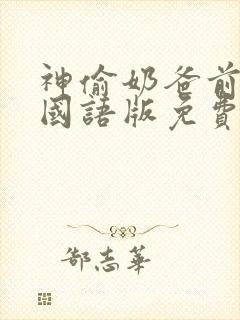 神偷奶爸前
國語版免費
郜志華